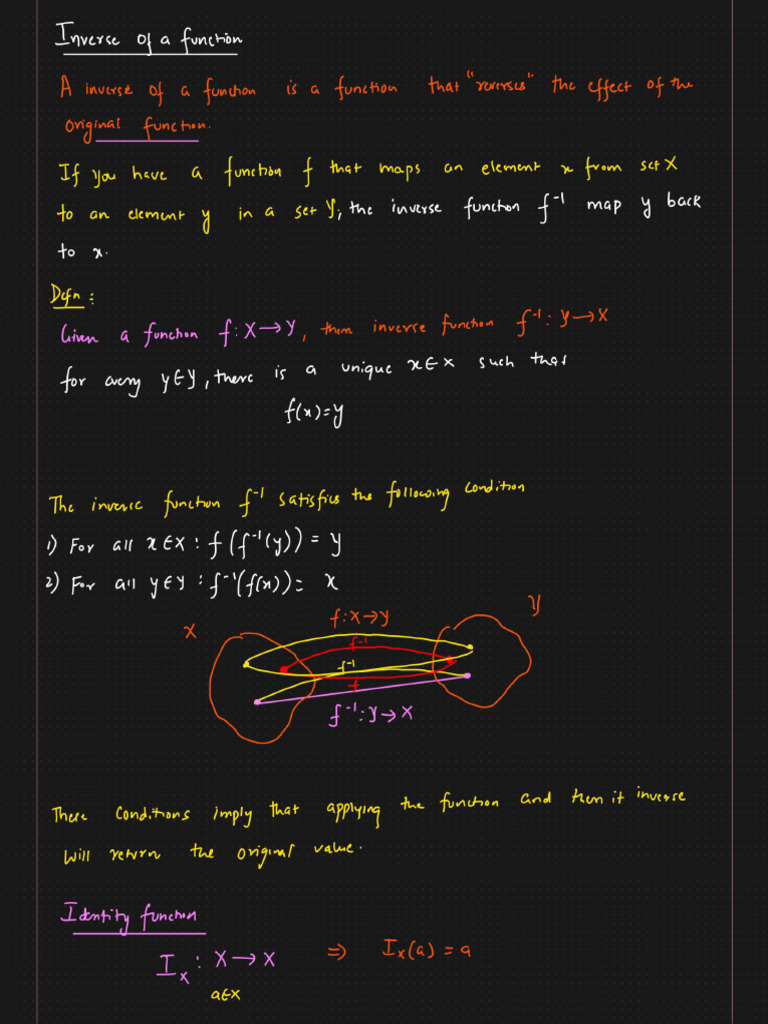 Inverse of a function
A inverse of a function is a function that "reverses" the effect of the
original function.
If you have a function f that maps an element x from set X
to an element y in a set Y, the inverse function f⁻¹ map y back
to x.
Defn:
Given a function f: X→Y, then inverse function f⁻¹: Y→X
for every y∈Y, there is a unique x∈X such that
f(x)=y
The inverse function f⁻¹ satisfies the following condition
1) For all x∈X : f(f⁻¹(y)) = y
2) For all y∈Y : f⁻¹(f(x)) = x
f: X→Y
X
Y
f⁻¹
f⁻¹
f
f⁻¹: Y→X
These conditions imply that applying the function and then it inverse
will return the original value.
Identity function
Iₓ : X→X ⇒ Iₓ(a) = a
a∈X